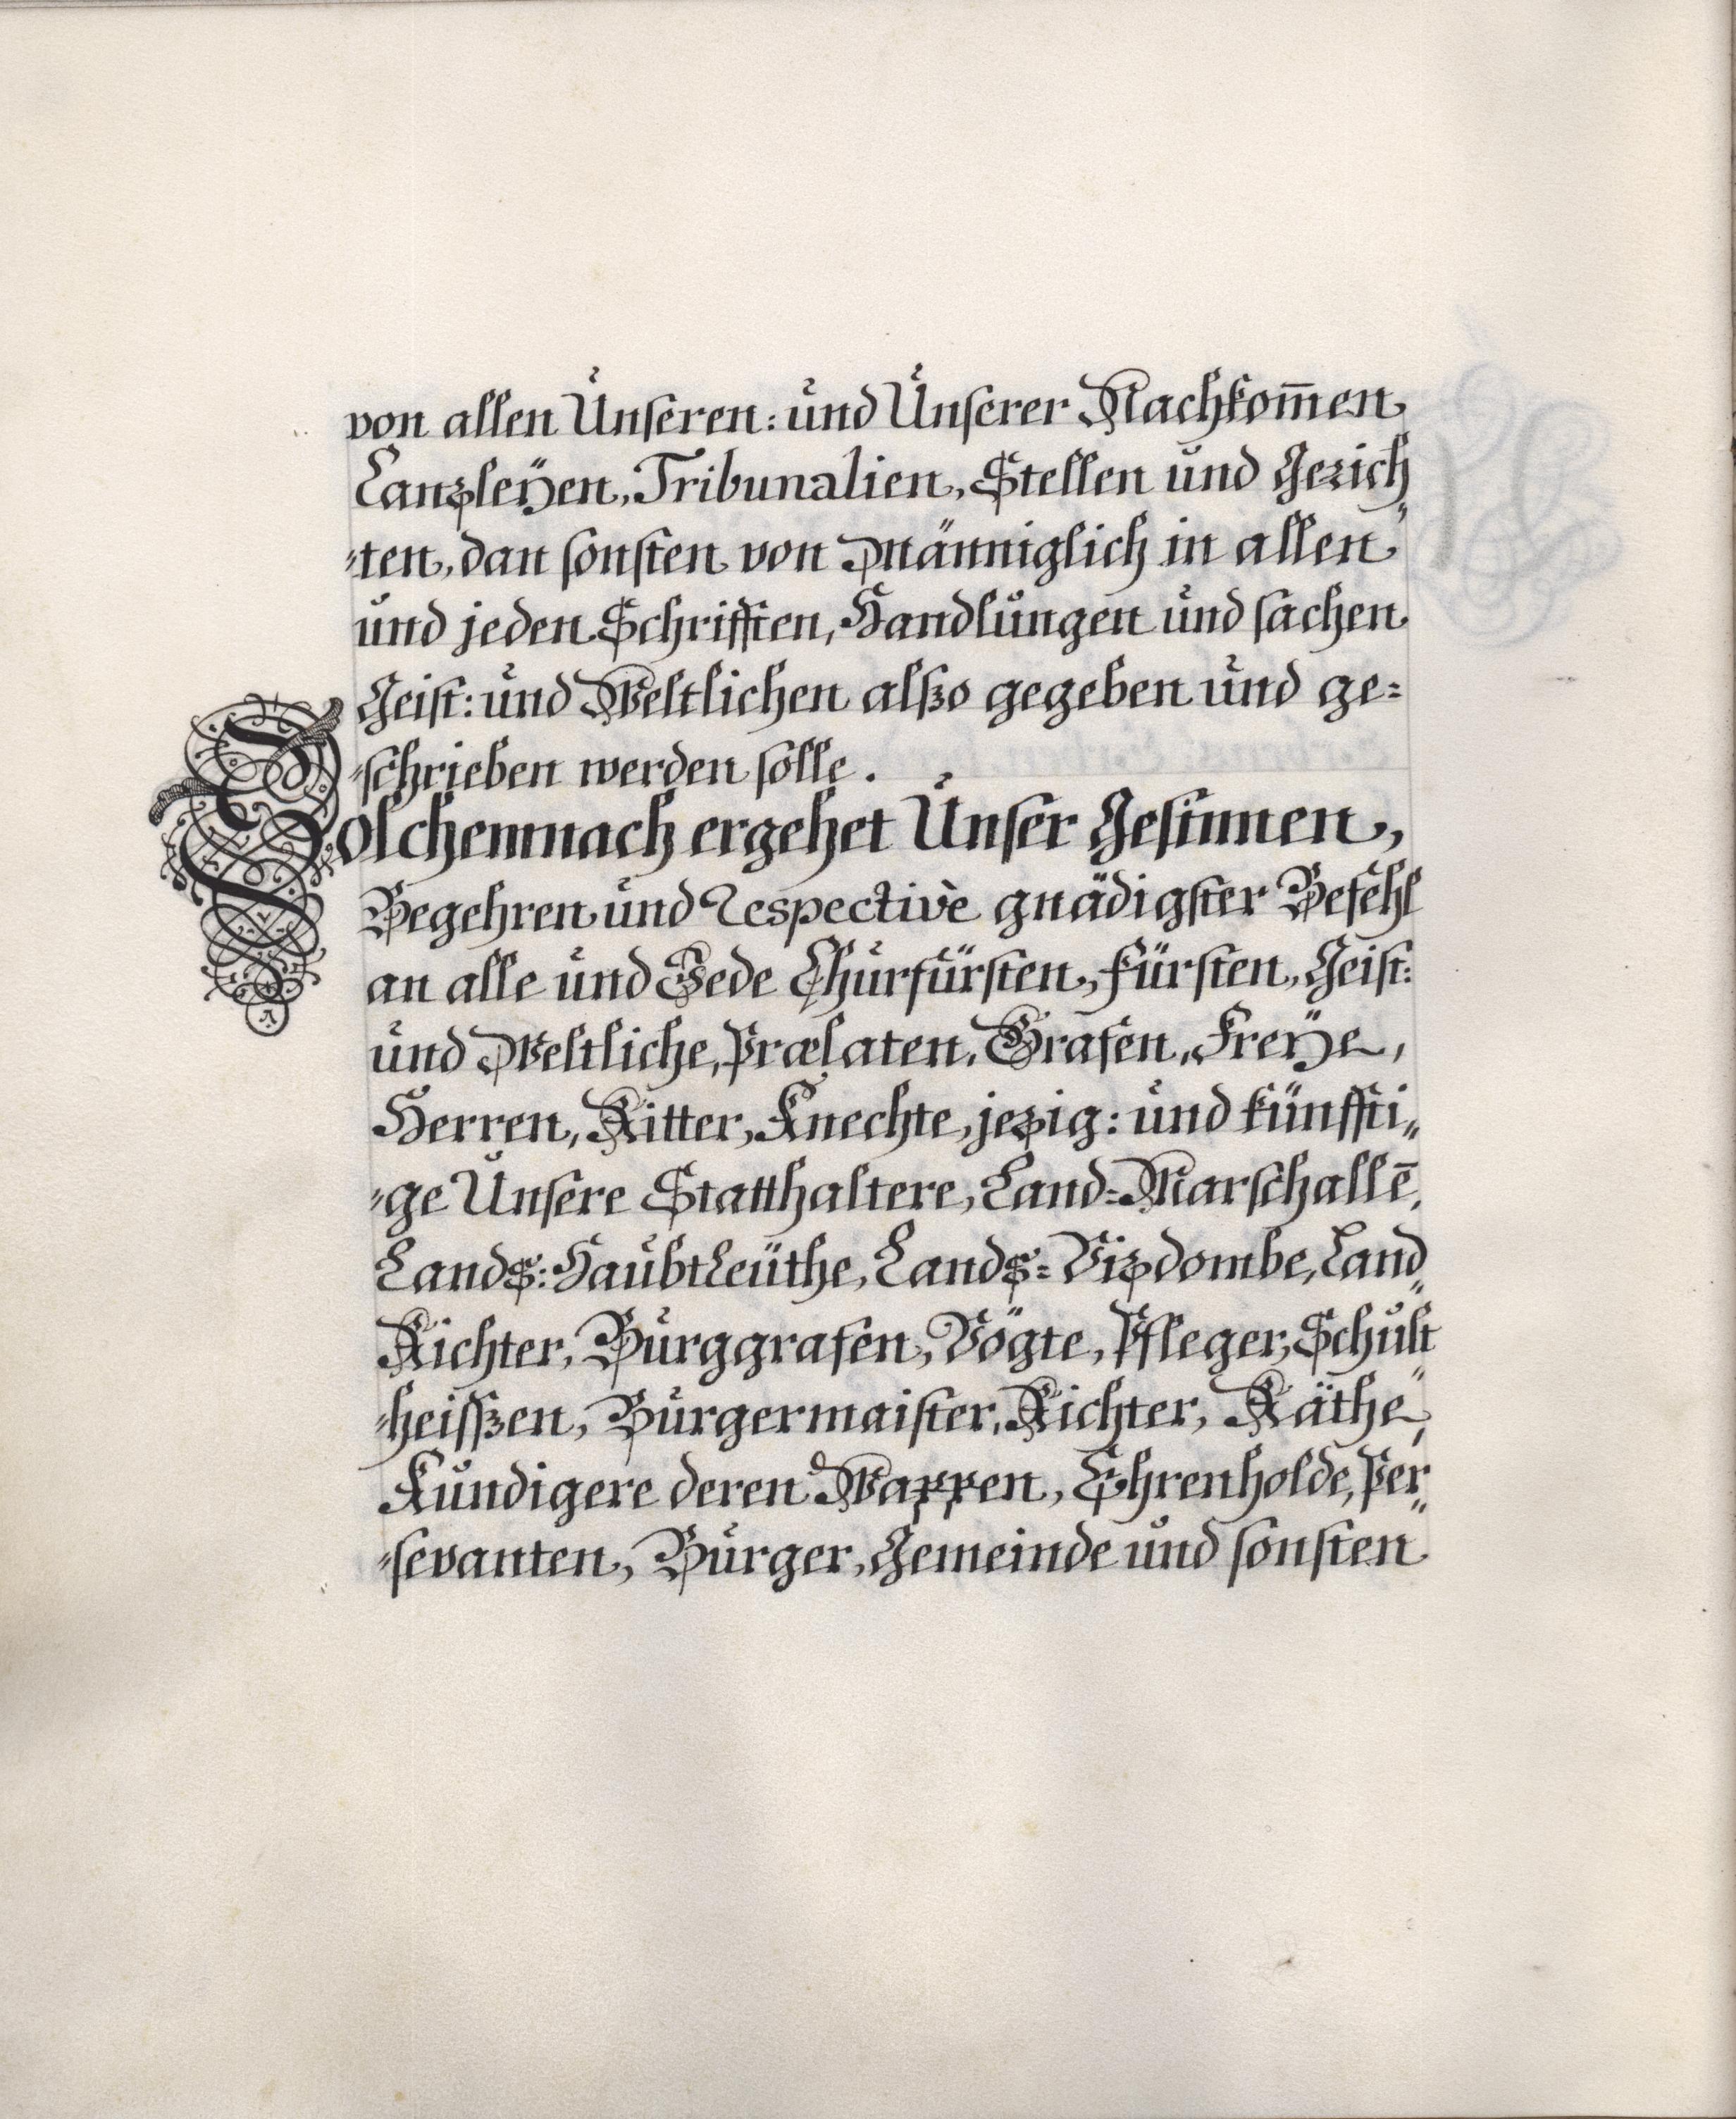 von allen Unseren: und Unserer Nachkom̄en
Canzleÿen, Tribunalien, Stellen und Gerich
„ten, dan sonsten von Männiglich in allen
und jeden Schrifften, Handlungen und sachen
Geist: und Weltlichen alßo gegeben und ge=
„schrieben werden solle.
Solchemnach ergehet Unser Gesinnen,
Begehren und Respectivè gnädigster Befehl
an alle und Jede Churfürsten, Fürsten, Geist:
und Weltliche, Prælaten, Grafen, Freÿe,
Herren, Ritter, Knechte, jezig: und künffti„
„ge Unsere Statthaltere, Land=Marschallē,
Lands: Haubtleüthe, Lands=Vizdombe, Land„
Richter, Burggrafen, Vögte, Pfleger, Schult„
„heissen, Burgermaister, Richter, Räthe,
Kundigere deren Wappen, Ehrenholde, Per„
„sevanten, Burger, Gemeinde und sonsten